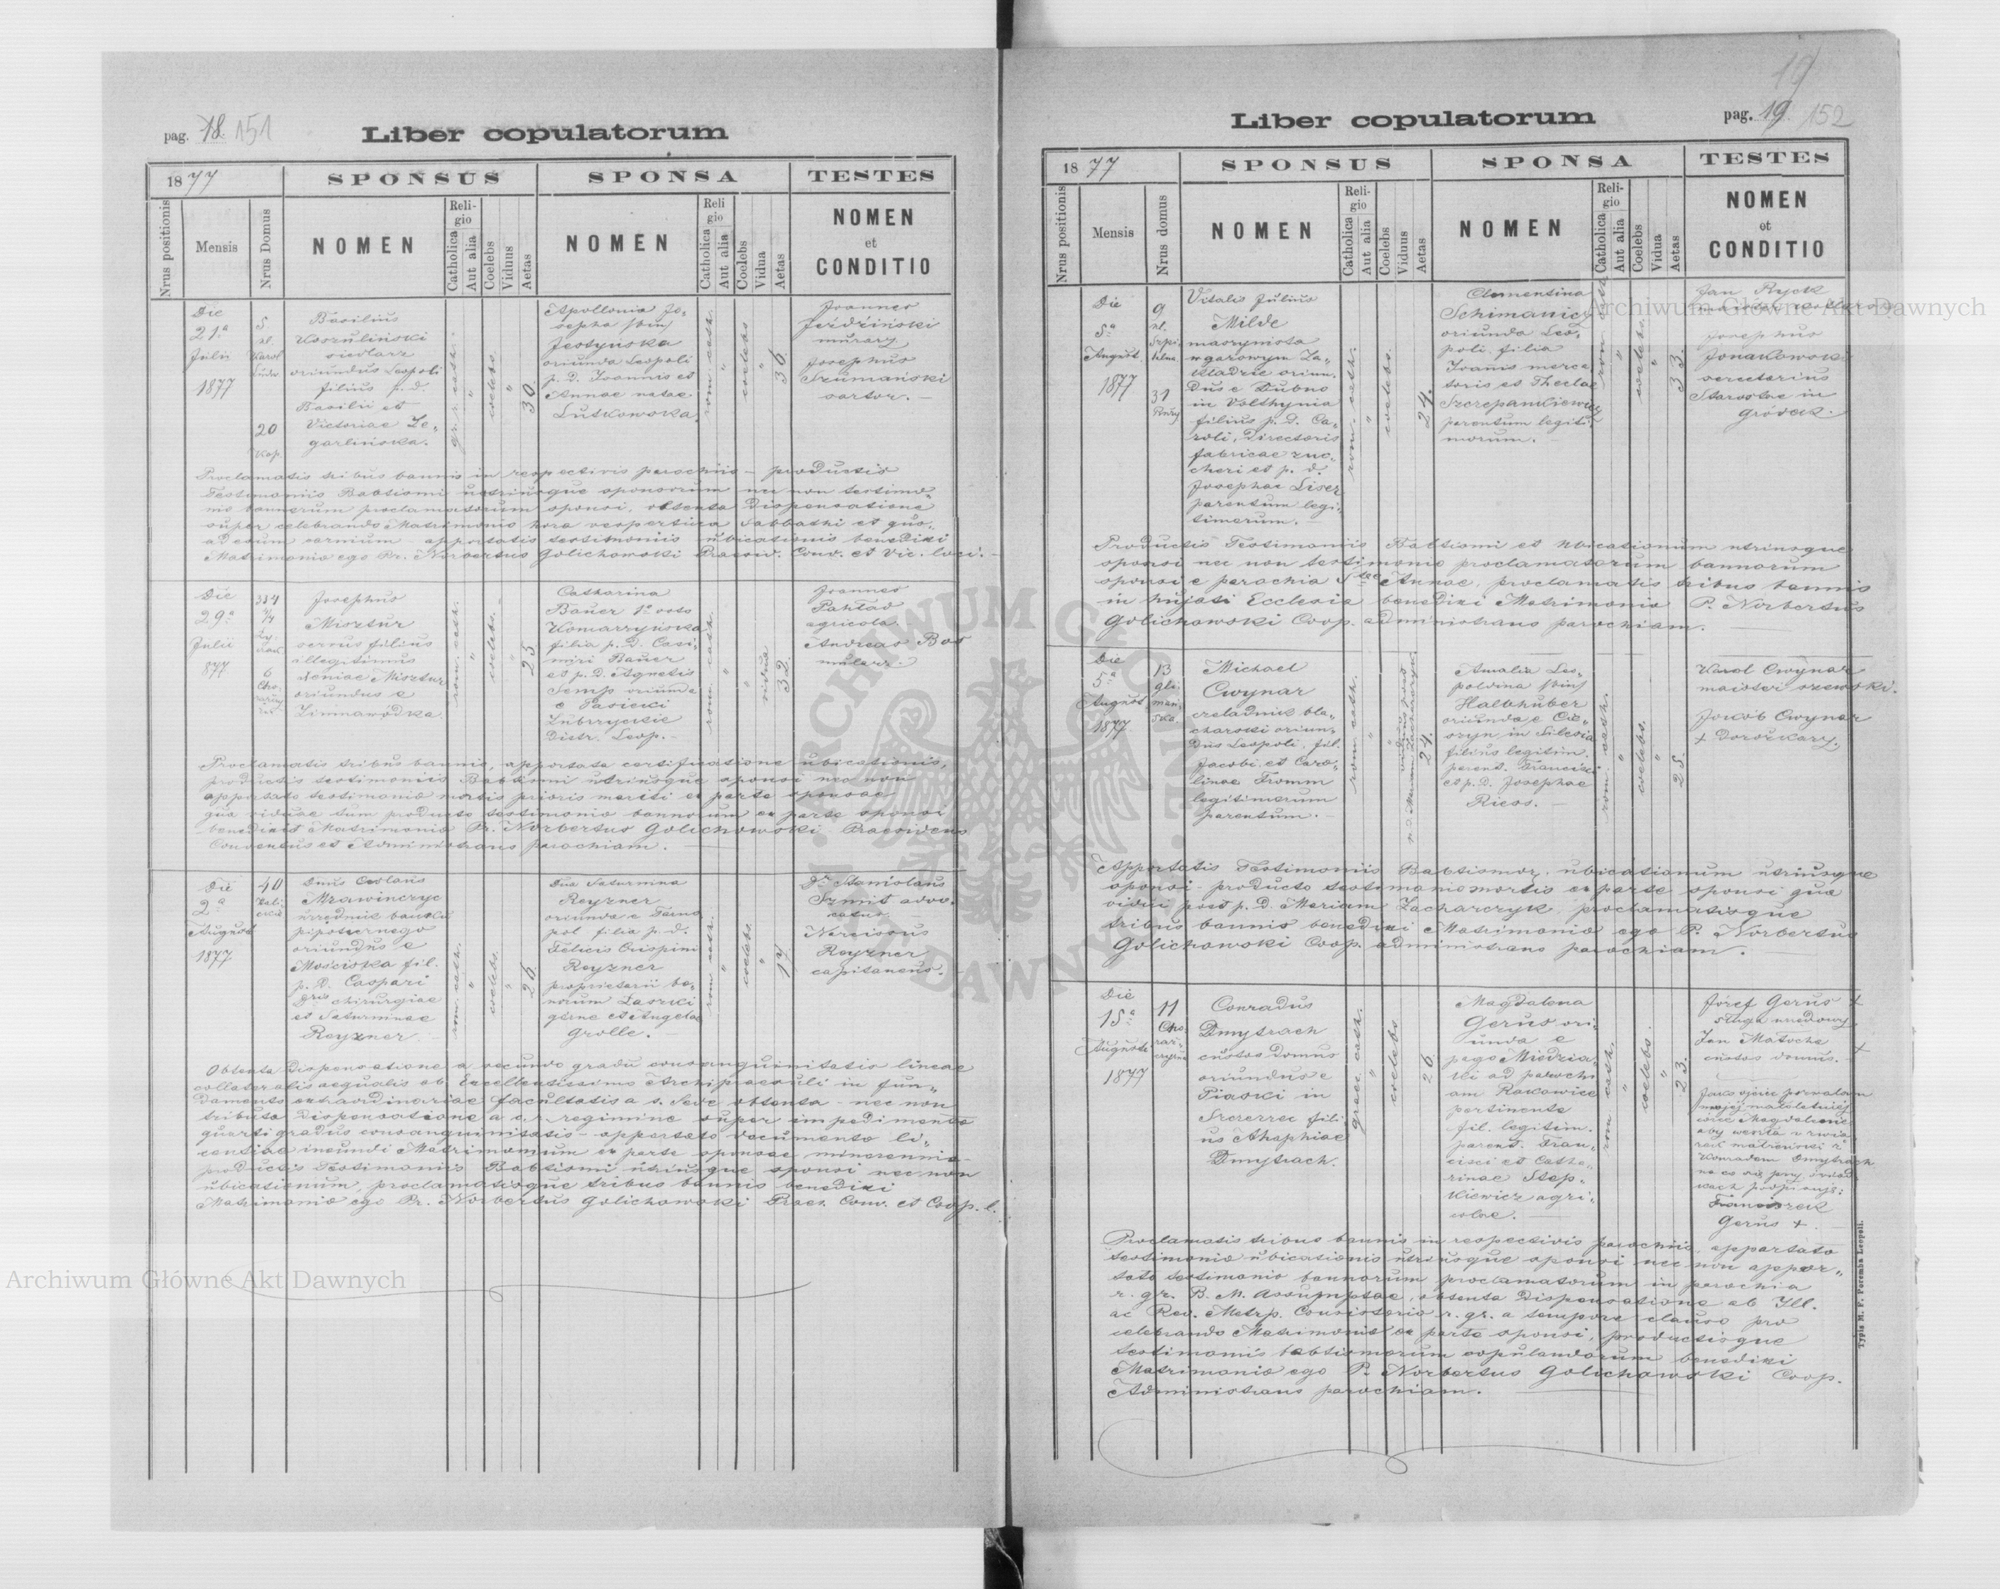 pag. 18. 151
Liber copulatorum
1877
SPONSUS
SPONSA
TESTES
Nrus positionis
Mensis
Nrus Domus
NOMEN
Religio
Catholica
Aut alia
Coelebs
Viduus
Aetas
NOMEN
Religio
Catholica
Aut alia
Coelebs
Vidua
Aetas
NOMEN
et
CONDITIO
Die
21a
Julii
1877
5
20
Basilius
siodlarz
oriundus Leopoli
filius p. d.
Basilii et
Victoriae
coelebs.
30.
Apollonia Jo-
sepha
oriunda Leopoli
p. D. Joannis et
Annae natae
Lutkowska
rom. cath.
coelebs
36.
Joannes
murarz
Josephus
Szumański
sartor.
Proclamatis tribus bannis in respectivis parochiis – productis
Testimoniis Babtismi utriusque sponsorum nec non testimo-
nio bannorum proclamatorum sponsi, obtenta Dispensatione
super celebrando Matrimonio hora vespertina Sabbathi et
esum carnium – apportatis testimoniis ubicationis benedixi
Matrimonio ego Pr. Norbertus Golichowski Praesid. Conv. et Vic. loci.
Die
29a
Julii
877
Josephus
Misztur
filius
illegitimus
Misztur
oriundus e
Zimnawódka
rom. cath.
coelebs.
25
Catharina
Bauer 1o voto
Komarzyńska
filia p. D. Casi-
miri Bauer
et p. D. Agnetis
Semp oriunda
e Pasieki
Distr. Leop.
rom. cath.
vidua
32.
Joannes
agricola.
Andreas Bos
mularz.
Proclamatis tribus bannis, apportata certificatione ubicationis,
productis testimoniis Babtismi utriusque sponsi nec non
apportato testimonio mortis prioris mariti ex parte sponsae
qua viduae tum producto testimonio bannorum ex parte sponsi
benedixit Matrimonio Pr. Norbertus Golichowski Praesidens
Conventus et Administrans parochiam.
Die
2a
August
1877
40
Dnus
Mrawinczyc
urzędnik banku
oriundus e
Mościska fil.
p. D. Caspari
chirurgiae
et Saturninae
Reyzner
rom. cath.
coelebs.
26
Dna Saturnina
Reyzner
oriunda e Tarno-
pol filia p. d.
Felicis Crispini
Reyzner
proprietarii bo-
norum Laszki
górne et Angelae
Grolle.
rom. cath.
coelebs
17
Dr. Stanislaus
Szmit advo-
catus.
Narcissus
Reyzner
capitaneus.
Obtenta Dispensatione a secundo gradu consanguinitatis lineae
collateralis aequalis ab Excellentissimo Archipraesuli in fun-
damento extraordinariae facultatis a S. Sede obtenta – nec non
tributa Dispensatione a c. r. regimine super impedimento
quarti gradus consanguinitatis – apportato documento li-
centiae ineundi Matrimonium ex parte sponsae minorennis
productis Testimoniis Babtismi utriusque sponsi nec non
ubicationum, proclamatisque tribus bannis benedixi
Matrimonio ego Pr. Norbertus Golichowski Praes. Conv. et Coop. l.
19
pag. 19. 152
Liber copulatorum
1877
SPONSUS
SPONSA
TESTES
Nrus positionis
Mensis
Nrus domus
NOMEN
Religio
Catholica
Aut alia
Coelebs
Viduus
Aetas
NOMEN
Religio
Catholica
Aut alia
Coelebs
Vidua
Aetas
NOMEN
et
CONDITIO
Die
5a
August
1877
9
31
Vitalis Julius
Milde
maszynista
w gazowym Za-
kładzie oriun-
dus e Dubno
in Volhynia
filius p. D. Ca-
roli, Directoris
fabricae zuc-
cheri et p. d.
Josephae Liser
parentum legi-
timorum.
rom. cath.
coelebs.
24.
Clementina
Schimanicz
oriunda Leo-
poli. filia
Joanis merca-
toris et Theclae
Szczepankiewicz
parentum legiti-
morum.
rom. cath.
coelebs.
33.
Jan Ryck
Josephus
Jonakowski
secretarius
Starostae in
Gródek.
Productis Testimoniis Babtismi et ubicationum utriusque
sponsi nec non testimonio proclamatorum bannorum
sponsi e parochia Stae Annae, proclamatis tribus bannis
in hujati Ecclesia benedixi Matrimonio P. Norbertus
Golichowski Coop. administrans parochiam.
Die
5a
August
1877
13
Michael
Cwynar
czeladnik bla-
charski oriun-
dus Leopoli, fil.
Jacobi et Caro-
linae Fromm
legitimorum
parentum.
rom cath.
24.
Amalia Leo-
poldina
Halbhuber
oriunda e
in Silesia
filius legitim.
parent. Francisci
et p. D. Josephae
Ricos.
rom. cath.
coelebs.
25.
Karol Cwynar
majster szewski.
Jakób Cwynar
+ Dorożkarz.
Apportatis Testimoniis Babtismor. ubicationum utriusque
sponsi – producto testimonio mortis ex parte sponsi qua
vidui post p. D. Mariam Zacharczyk, proclamatisque
tribus bannis benedixi Matrimonio ego P. Norbertus
Golichowski Coop. administrans parochiam.
Die
15a
Augusti
1877
11
Conradus
Dmytrach
custos domus
oriundus e
Piaski in
Szczerzec fili-
us Ahaphiae
Dmytrach.
graeci cath.
coelebs
26.
Magdalena
Gerus ori-
unda e
pago Miedzia-
ki ad parochi-
am Rakowice
pertinente
fil. legitim.
parent. Fran-
cisci et Cathe-
rinae Step-
kiewicz agri-
colae.
rom cath.
coelebs.
23.
Józef Gerus +
Jan Matocha
custos domus. +
Jako ojciec pozwalam
mojej małoletniej
córce Magdalenie
aby weszła w zwią-
zek małżeński z
Konradem Dmytrach
na co się przy świad-
kach podpisuję:
Franciszek
Gerus +
Proclamatis tribus bannis in respectivis parochiis, apportato
testimonio ubicationis utriusque sponsi nec non appor-
tato testimonio bannorum proclamatorum in parochia
r. gr. B. M. Assumptae, obtenta Dispensatione ab Ill.
ac Rev. Metrp. Consistorio r. gr. a tempore clauso pro
celebrando Matrimonio ex parte sponsi, productisque
testimoniis babtismorum copulandorum benedixi
Matrimonio ego P. Norbertus Golichowski Coop.
Administrans parochiam.
Typis M. F. Poremba Leopoli.
Archiwum Główne Akt Dawnych
Archiwum Główne Akt Dawnych
ARCHIWUM GŁÓWNE AKT DAWNYCH